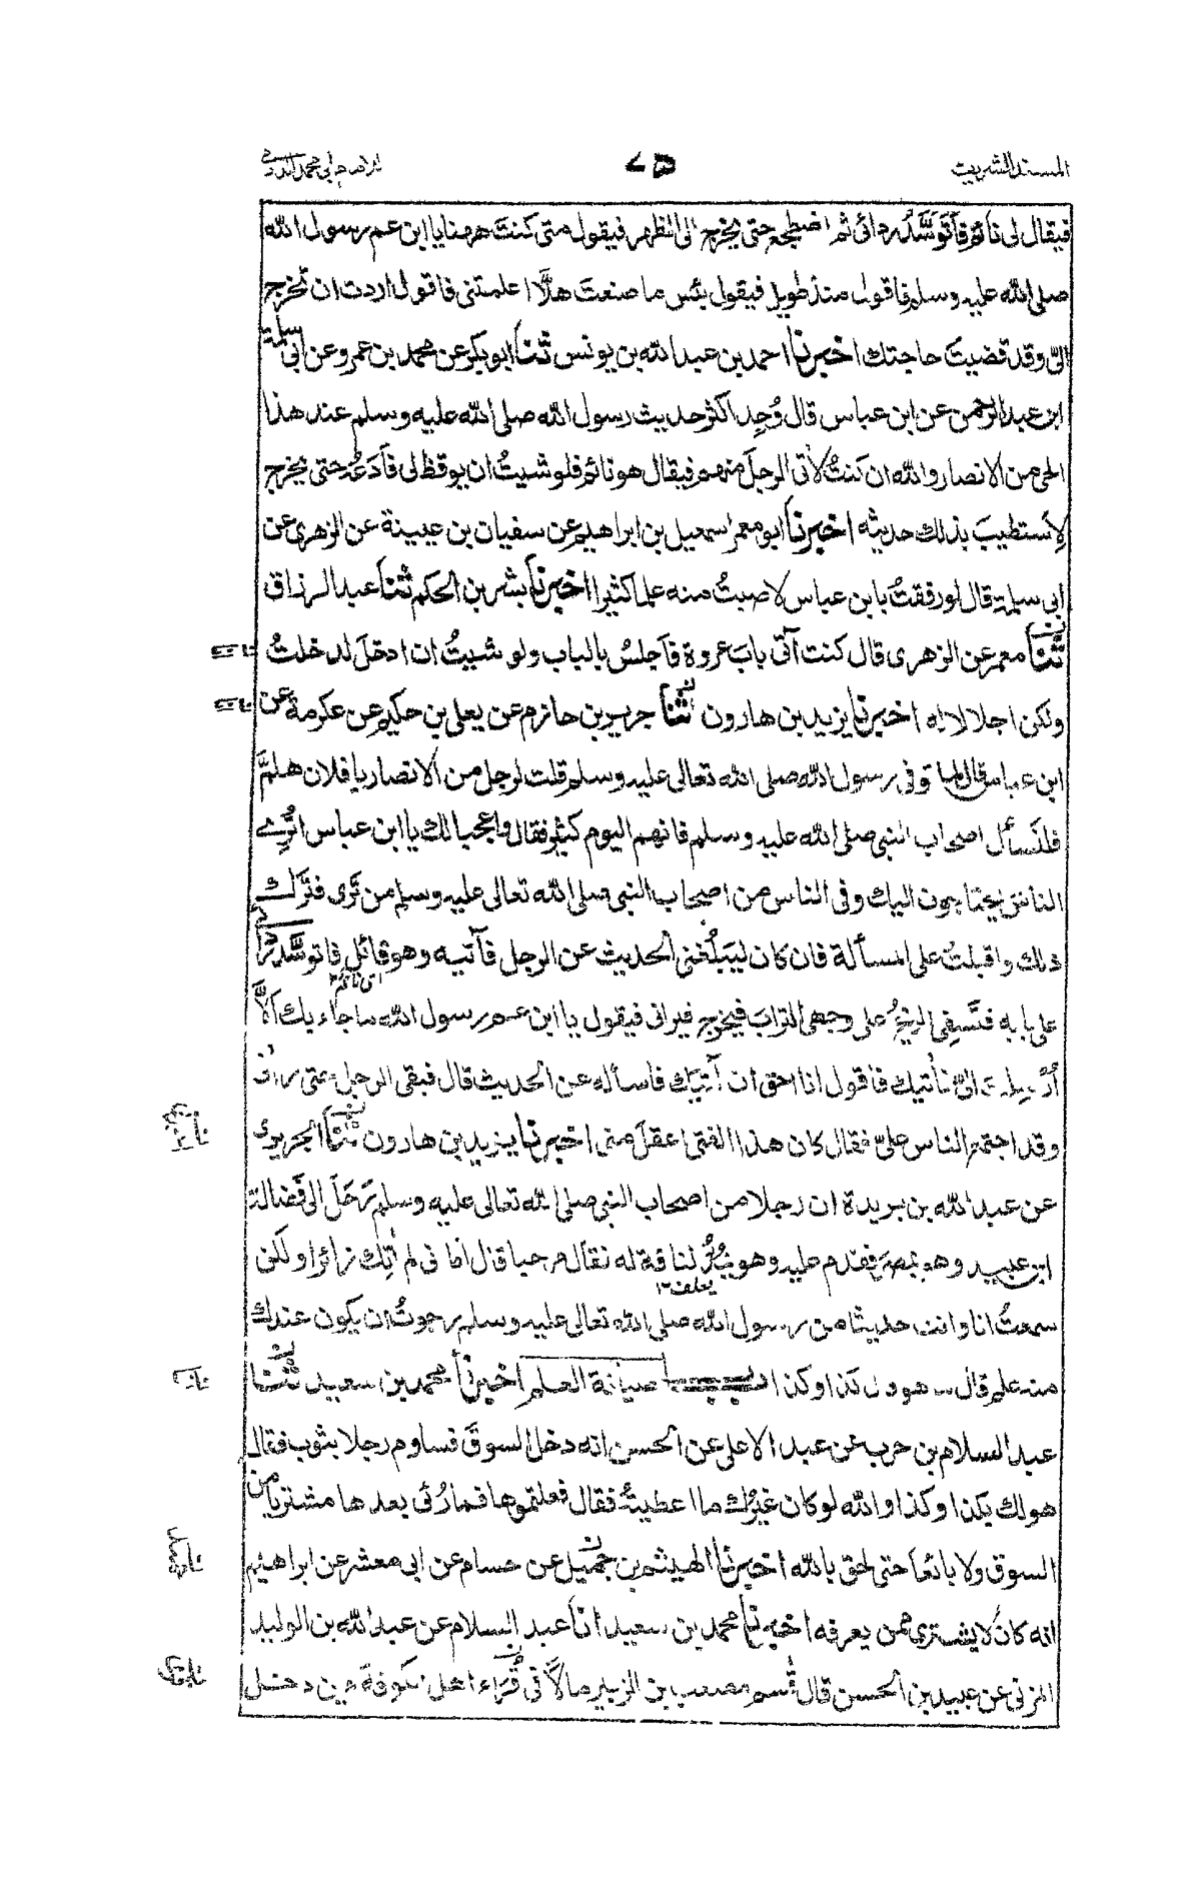 المسند الشريف
٧٥
للامام ابى محمد الدارمى
فيقال لى نائم فاتوسد ردائى ثم اضطجع حتى يخرج الى الظهر فيقول متى كنت ههنا يا ابن عم رسول الله
صلى الله عليه وسلم فاقول منذ طويل فيقول بئس ما صنعت هلَّا اعلمتنى فاقول اردت ان تخرج
الىّ وقد قضيتَ حاجتك اخبرنا احمد بن عبد الله بن يونس ثنا ابو بكر عن محمد بن عمرو عن ابى سلمة
ابن عبد الرحمن عن ابن عباس قال وُجِد اكثر حديث رسول الله صلى الله عليه وسلم عند هذا
الحى من الانصار والله ان كنتُ لاٰتى الرجلَ منهم فيقال هو نائم فلو شيتُ ان يوقظ لى فأدَعُه حتى يخرج
لِاَستطيبَ بذلك حديثه اخبرنا ابو معمر اسمعيل بن ابراهيم عن سفيان بن عيينة عن الزهرى عن
ابى سلمة قال لو رفقتُ بابن عباس لاصبتُ منه علما كثيرا اخبرنا بشر بن الحكم ثنا عبد الرزاق
ثنا معمر عن الزهرى قال كنت آتى بابَ عروة فاَجلسُ بالباب ولو شيتُ ان ادخلَ لدخلتُ
ولكن اجلالا له اخبرنا يزيد بن هارون ثنا جرير بن حازم عن يعلى بن حكيم عن عكرمة عن
ابن عباس قال لما توفى رسول الله صلى الله تعالى عليه وسلم قلت لرجل من الانصار يا فلان هلمَّ
فلنَسأل اصحاب النبى صلى الله عليه وسلم فانهم اليوم كثير فقال واعجبا لك يا ابن عباس اترٰى
الناسَ يحتاجون اليك وفى الناس من اصحاب النبى صلى الله تعالى عليه وسلم من تَرى فترك
ذلك واقبلتُ على المسألة فان كان ليَبلُغنى الحديث عن الرجل فآتيه وهو قائل فاتوسَّد ردائى
اى نائم ١٢
على بابه فتَسفِى الريحُ على وجهى الترابَ فيخرج فيرانى فيقول يا ابن عم رسول الله ما جاء بك اَلَّا
اَرسلتَ الىَّ فاٰتيك فاقول انا احق ان آتيَك فاسأله عن الحديث قال فبقى الرجل حتى راٰنى
وقد اجتمع الناس علىّ فقال كان هذا الفتى اعقلَ منى اخبرنا يزيد بن هارون ثنا الجريرى
عن عبد الله بن بريدة ان رجلا من اصحاب النبى صلى الله تعالى عليه وسلم رَحَلَ الى فَضالة
ابن عبيد وهو بمصر فقدم عليه وهو يمُدُّ لناقة له فقال مرحبا قال اما انى لم اٰتِك زائرا ولكن
يعلف ١٢
سمعتُ انا وانت حديثا من رسول الله صلى الله تعالى عليه وسلم رجوتُ ان يكون عندك
منه علم قال ما هو قال كذا وكذا باب صيانة العلم اخبرنا محمد بن سعيد ثنا
عبد السلام بن حرب عن عبد الاعلى عن الحسن انه دخل السوقَ فساوم رجلا بثوب فقال
هو لك بكذا وكذا والله لو كان غيرُك ما اعطيتُهٗ فقال فعلتموها فمارُئى بعدها مشتريا من
السوق ولا بائعا حتى لحق بالله اخبرنا الهيثم بن جميل عن حسام عن ابى معشر عن ابراهيم
انه كان لا يشترى ممن يعرفه اخبرنا محمد بن سعيد انا عبد السلام عن عبد الله بن الوليد
المزنى عن عبيد بن الحسن قال قُسم مصعب بن الزبير مالًا فى قُرّاء اهل الكوفة حين دخل